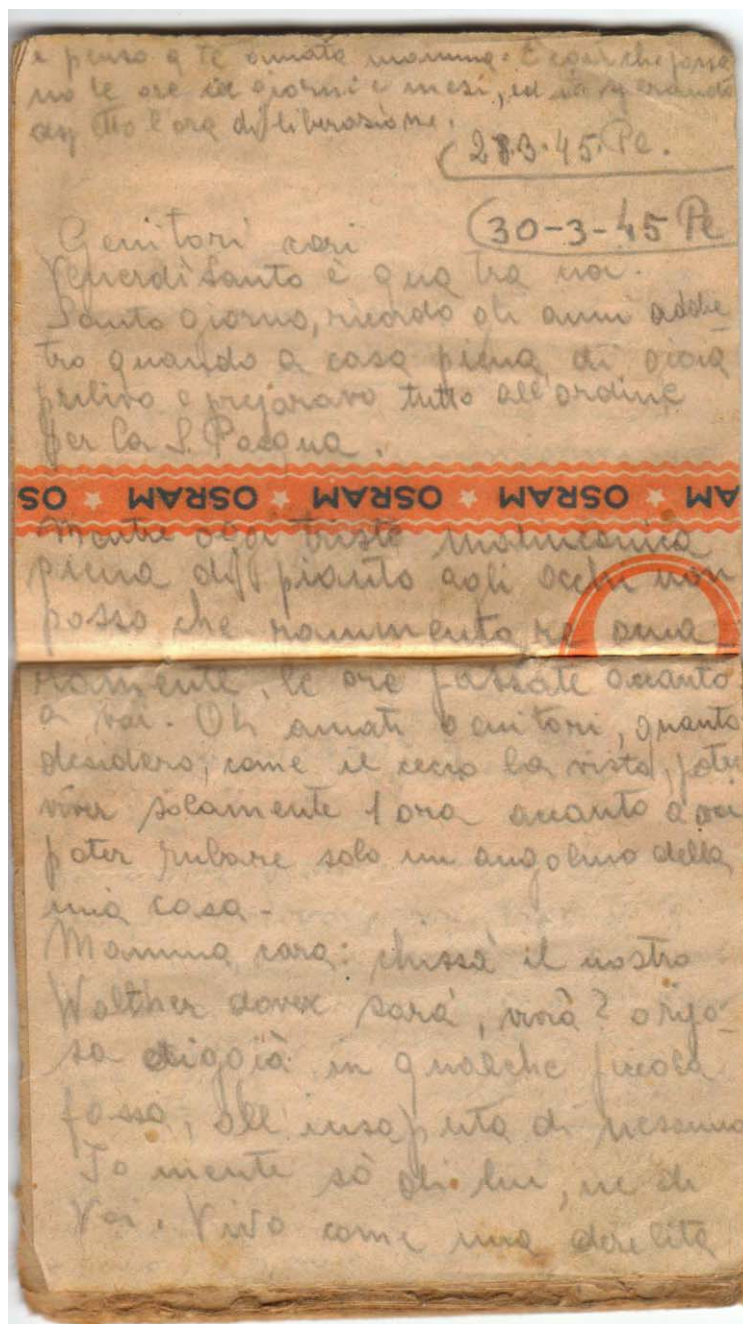 e penso a te amata mamma. E così che passa
no le ore in giorni e mesi, ed io sperando
aspetto l'ora di liberazione.
28.3.45. Pe.
30-3-45 Pe
Genitori cari
Venerdì Santo è qua tra noi.
Santo giorno, ricordo gli anni addie
tro quando a casa piena di gioia
pulivo e preparavo tutto all'ordine
per la S. Pasqua.
OSRAM ★ OSRAM ★ OSRAM ★ OSRAM
Mentre oggi triste malinconica
piena di pianto agli occhi non
posso che rammentare ama
ramente, le ore passate accanto
a voi. Oh amati genitori, quanto
desidero, come il cieco la vista, poter
viver solamente 1 ora accanto a voi
poter rubare solo un angolino della
mia casa.
Mamma cara: chissà il nostro
Walther dove sarà, vivrà? o ripo-
sa diggià in qualche piccola
fossa, all'insaputa di nessuno
Io niente sò di lui, ne di
Voi. Vivo come una derelita